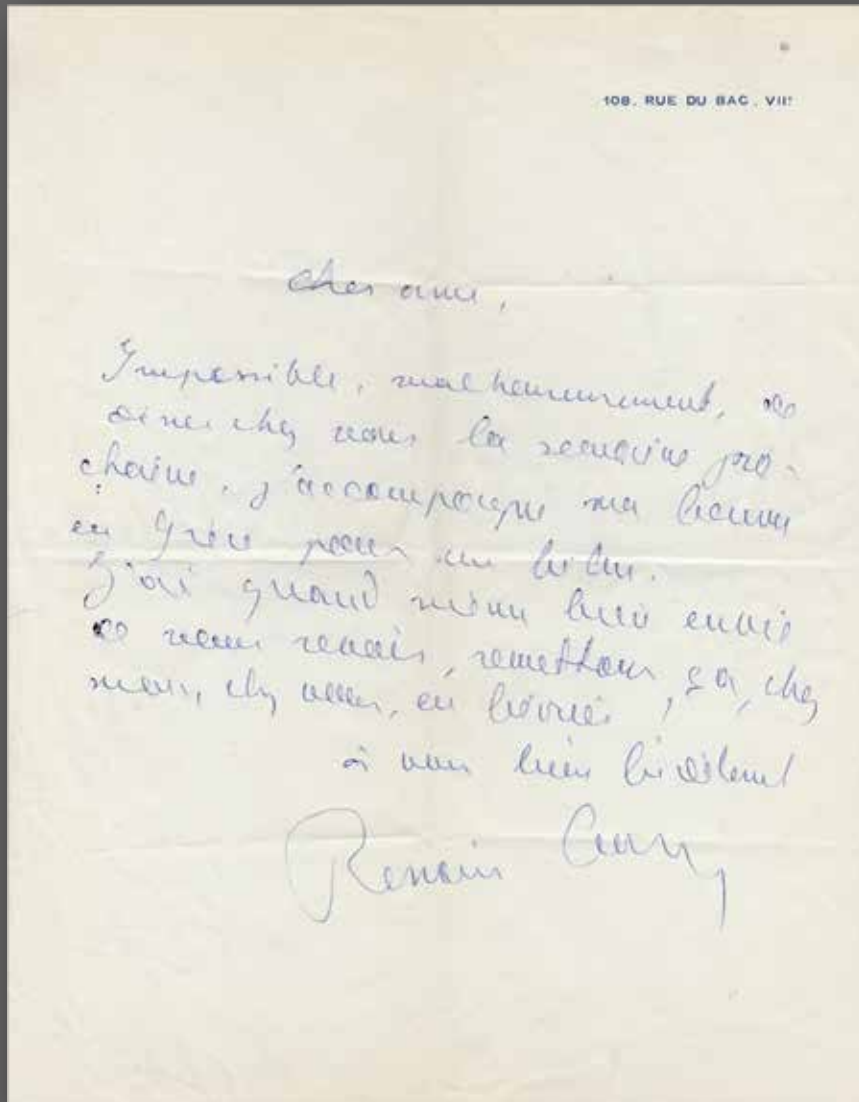 108. RUE DU BAC. VIIᵉ
Cher ami,
Impossible, malheureusement, de
diner chez vous la semaine pro-
chaine, j'accompagne ma femme
en Grèce pour un film.
J'ai quand même bien envie
de vous revoir, remettons ça, chez
moi, chez vous, en février,
à vous bien fidèlement
Romain Gary